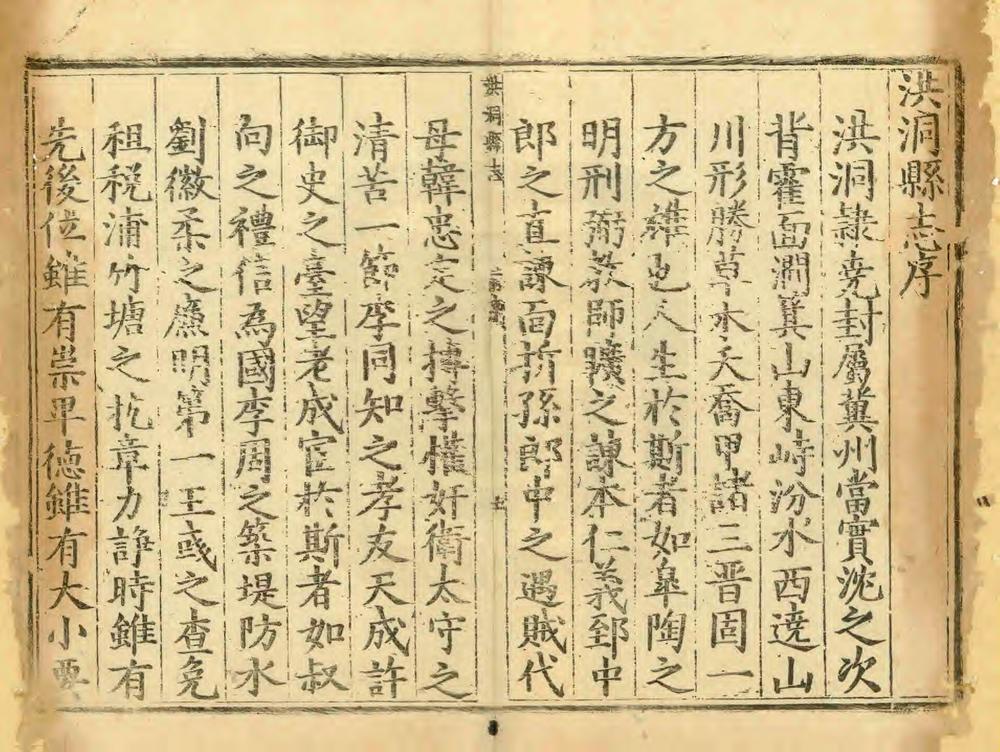 洪洞縣志序
洪洞隷堯封屬冀州當實沈之次
背霍面澗箕山東峙汾水西遶山
川形勝草木夭喬甲諸三晋固一
方之雄也人生於斯者如臯陶之
明刑弼教師曠之諫本仁義郅中
郎之直諫面折孫郎中之遇賊代
洪洞縣志
母韓忠定之摶擊權奸衛太守之
清苦一節李同知之孝友天成許
御史之臺望老成宦於斯者如叔
向之禮信為國李周之築堤防水
劉徽柔之廉明第一王彧之查免
租税浦竹塘之抗章力諍時雖有
先後位雖有崇卑徳雖有大小要